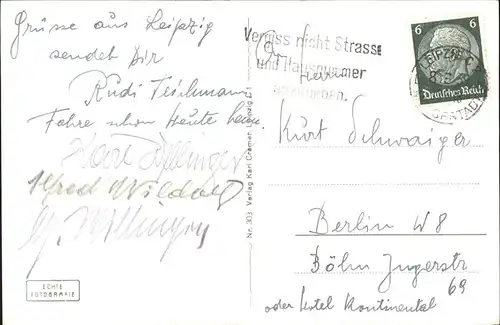 Grüsse aus Leipzig
sendet Dir
Rudi Teichmann
Fahre schon Heute heim.
Karl Dillinger
Alfred Wildorf
ECHTE
FOTOGRAFIE
Nr. 303 Verlag Karl Cramer, Leipzig C 1
Vergiss nicht Strasse
und Hausnummer
6 6
LEIPZIG C
Deutsches Reich
Herrn
Kurt Schwaiger
Berlin W8
Böhm Jägerstr
69
oder Hotel Kontinental